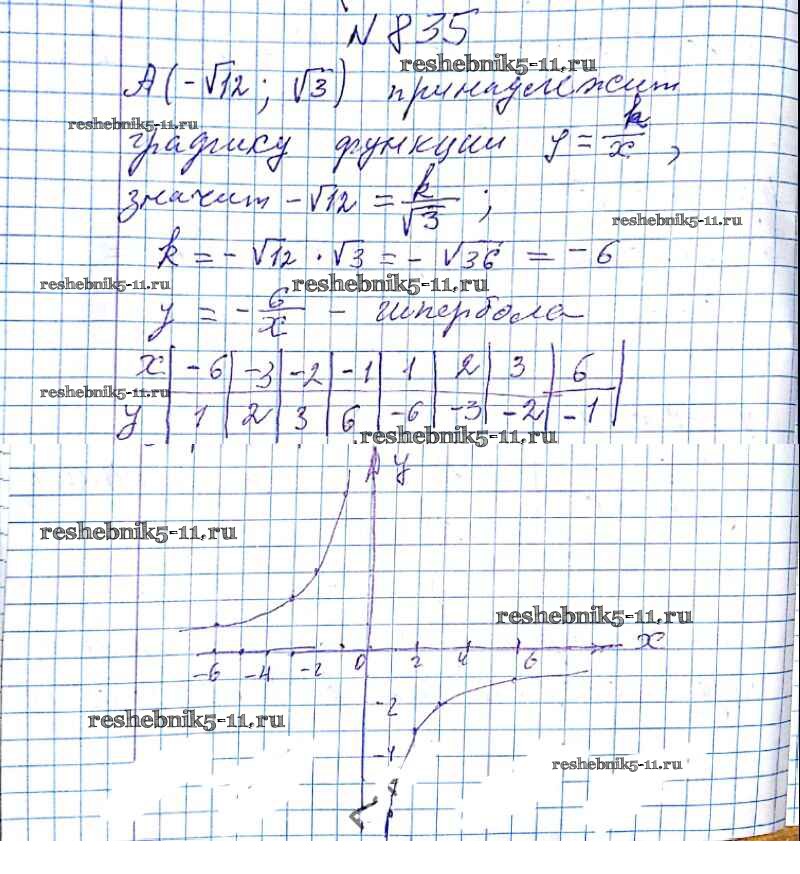 N 835
reshebnik5-11.ru
A(-√12; √3) принадлежит
reshebnik5-11.ru
графику функции y = k/x,
значит -√12 = k/√3;
reshebnik5-11.ru
k = -√12 · √3 = -√36 = -6
reshebnik5-11.ru
reshebnik5-11.ru
y = -6/x - гипербола
x | -6 | -3 | -2 | -1 | 1 | 2 | 3 | 6
reshebnik5-11.ru
y | 1 | 2 | 3 | 6 | -6 | -3 | -2 | -1
reshebnik5-11.ru
y
reshebnik5-11.ru
reshebnik5-11.ru
x
-6 -4 -2 0 2 4 6
-2
reshebnik5-11.ru
-4
reshebnik5-11.ru